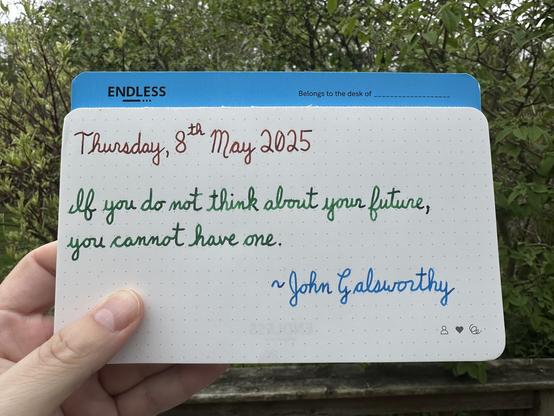 ENDLESS
Belongs to the desk of ____________________
Thursday, 8th May 2025
If you do not think about your future,
you cannot have one.
~ John Galsworthy